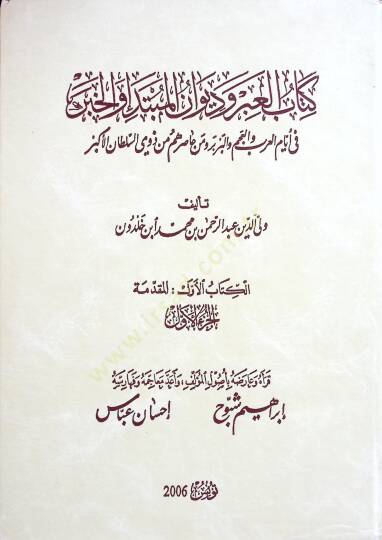 كتاب العبر وديوان المبتدإ والخبر
في أيام العرب والعجم والبربر ومن عاصرهم من ذوي السلطان الأكبر
تأليف
ولي الدين عبد الرحمن بن محمد ابن خلدون
الكتاب الأول: المقدمة
الجزء الأول
قرأه وعارضه بأصول المؤلف، وأعد معاجمه وفهارسه
إبراهيم شبوح إحسان عباس
تونس 2006